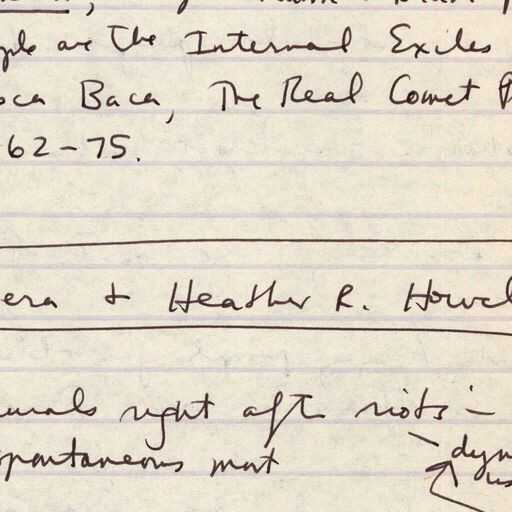 are the Internal Exiles
Baca, The Real Comet P
62-75.
era + Heather R. Howel
urals right after riots -
spontaneous mat dyn
us